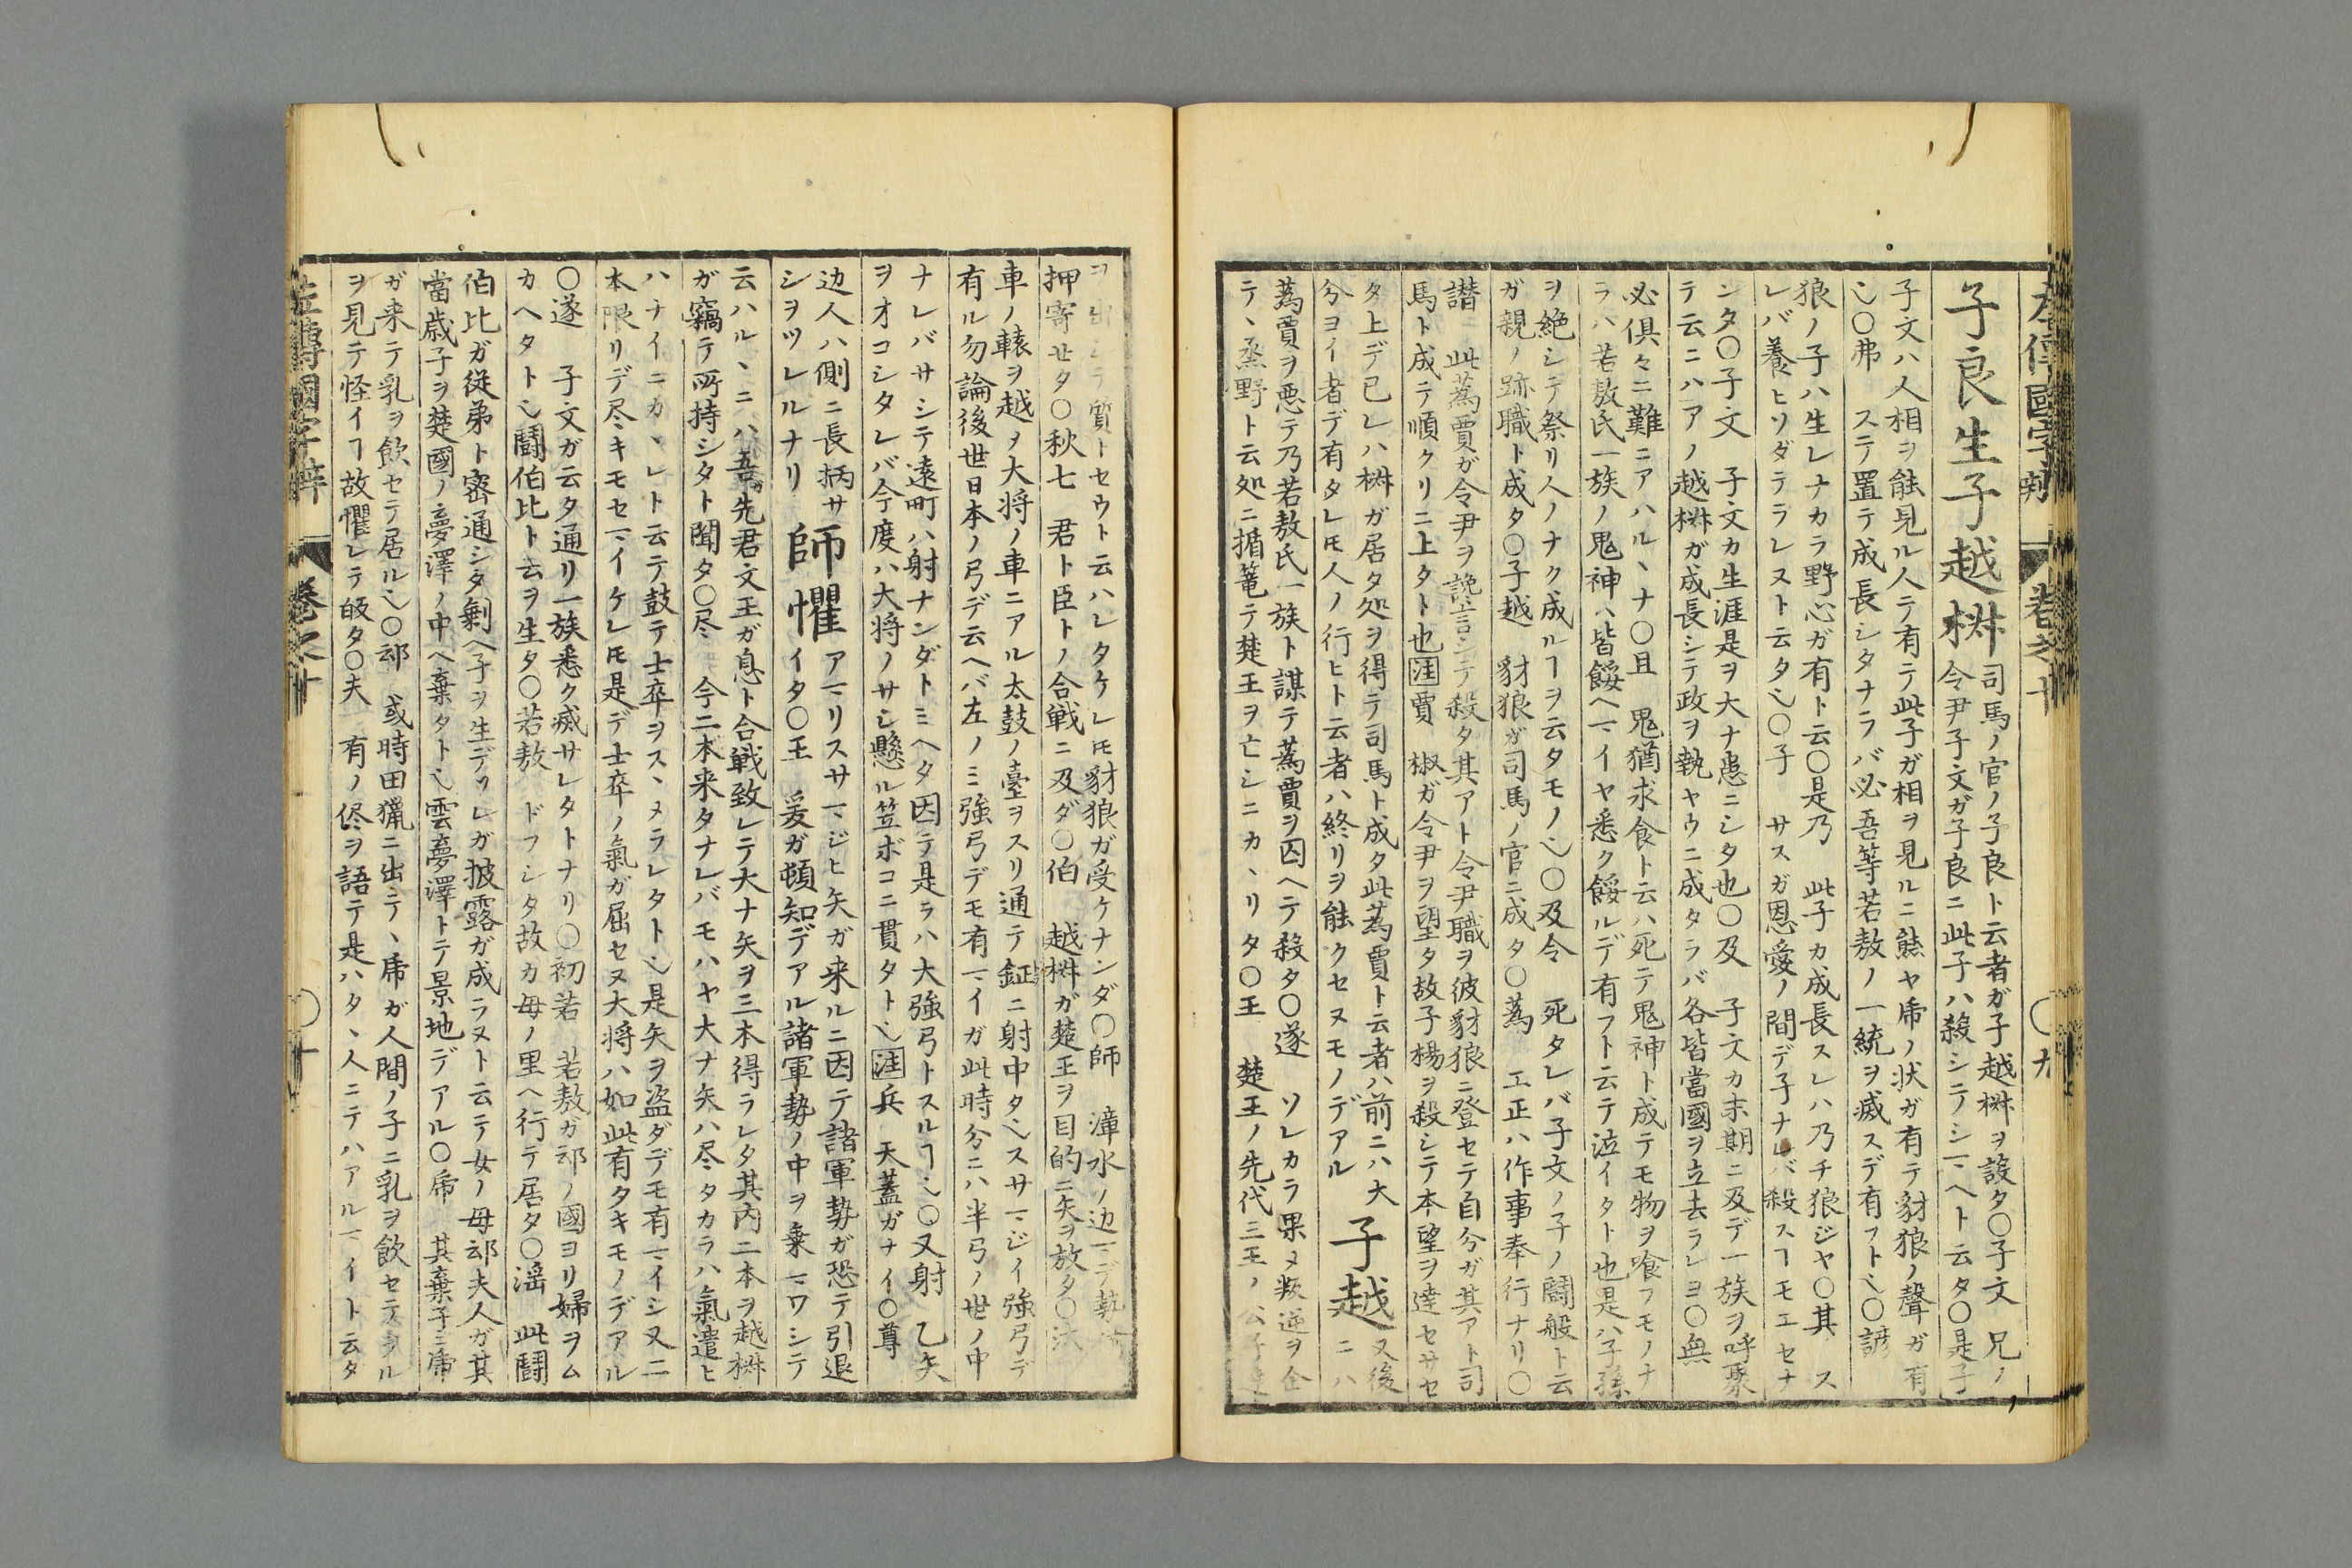 左傳國字辨 巻之十 〇九
子良生子越椒
司馬ノ官ノ子良ト云者ガ子越椒ヲ設タ〇子文 兄ノ
令尹子文ガ子良ニ此子ハ殺シテシマヘト云タ〇是子
子文ハ人相ヲ能見ル人テ有テ此子ガ相ヲ見ルニ熊ヤ虎ノ状ガ有テ豺狼ノ聲ガ有
也〇弗 ステ置テ成長シタナラバ必吾等若敖ノ一統ヲ滅スデ有フト也〇諺
狼ノ子ハ生レナカラ野心ガ有ト云〇是乃 此子カ成長スレハ乃チ狼ジヤ〇其 ス
レバ養ヒソダテラレヌト云タ也〇子 サスガ恩愛ノ間デ子ナレバ殺スヿモエセナ
ンタ〇子文 子文カ生涯是ヲ大ナ患ニシタ也〇及 子文カ末期ニ及デ一族ヲ呼聚
テ云ニハアノ越椒ガ成長シテ政ヲ執ヤウニ成タラバ各皆當國ヲ立去ラレヨ〇無
必倶々ニ難ニアハルヽナ〇且 鬼猶求食ト云ハ死テ鬼神ト成テモ物ヲ喰フモノナ
ラハ若敖氏一族ノ鬼神ハ皆餒ヘマイヤ悉ク餒ルデ有フト云テ泣イタト也是ハ子孫
ヲ絶シテ祭リ人ノナク成ルヿヲ云タモノ也〇及令 死タレバ子文ノ子ノ鬪般ト云
ガ親ノ跡職ト成タ〇子越 豺狼ガ司馬ノ官ニ成タ〇蔿 工正ハ作事奉行ナリ〇
譖 此蔿賈ガ令尹ヲ讒言シテ殺タ其アト令尹職ヲ彼豺狼ニ登セテ自分ガ其アト司
馬ト成テ順クリニ上タト也注賈 椒ガ令尹ヲ望タ故子楊ヲ殺シテ本望ヲ達セサセ
タ上デ已レハ椒ガ居タ処ヲ得テ司馬ト成タ此蔿賈ト云者ハ前ニハ大 子越 又後
分ヨイ者デ有タレ𪜈人ノ行ヒト云者ハ終リヲ能クセヌモノデアル ニハ
蔿賈ヲ悪テ乃若敖氏一族ト謀テ蔿賈ヲ囚ヘテ殺タ〇遂 ソレカラ果メ叛逆ヲ企
テヽ烝野ト云処ニ楯篭テ楚王ヲ亡シニカヽリタ〇王 楚王ノ先代三王ノ公子達
ヲ出シテ質トセウト云ハレタケレ𪜈豺狼ガ受ケナンダ〇師 漳水ノ辺マデ
押寄セタ〇秋七 君ト臣トノ合戦ニ及ダ〇伯 越椒ガ楚王ヲ目的ニ矢ヲ放タ〇汰
車ノ轅ヲ越メ大将ノ車ニアル太鼓ノ臺ヲスリ通テ鉦ニ射中タ也スサマジイ強弓デ
有ル勿論後世日本ノ弓デ云ヘバ左ノミ強弓デモ有マイガ此時分ニハ半弓ノ世ノ中
ナレバサシテ遠町ハ射ナンダトミヘタ因テ是ラハ大強弓トスルヿ也〇又射 乙矢
ヲオコシタレバ今度ハ大将ノサシ懸ル笠ボコニ貫タト也注兵 天蓋ガナイ〇尊
辺人ハ側ニ長柄サ 師懼 アマリスサマジヒ矢ガ来ルニ因テ諸軍勢ガ恐テ引退
シヲツレルナリ イタ〇王 爰ガ頓知デアル諸軍勢ノ中ヲ乗マワシテ
云ハルヽニハ吾先君文王ガ息ト合戦致レテ大ナ矢ヲ三本得ラレタ其内二本ヲ越椒
ガ竊テ所持シタト聞タ〇尽 今二本来タナレバモハヤ大ナ矢ハ尽タカラハ氣遣ヒ
ハナイニカヽレト云テ鼓テ士卒ヲスヽメラレタト也是矢ヲ盗ダデモ有マイシ又二
本限リデ尽キモセマイケレ𪜈是デ士卒ノ氣ガ屈セヌ大将ハ如此有タキモノデアル
〇遂 子文ガ云タ通リ一族悉ク滅サレタトナリ〇初若 若敖ガ䢵ノ國ヨリ婦ヲム
カヘタト也鬪伯比ト云ヲ生タ〇若敖 ドフシタ故カ母ノ里ヘ行テ居タ〇淫 此鬪
伯比ガ従弟ト密通シタ剰ヘ子ヲ生デソレガ披露ガ成ラヌト云テ女ノ母䢵夫人ガ其
當歳子ヲ楚國ノ夢澤ノ中ヘ棄タト也雲夢澤トテ景地デアル〇虎 其棄子ニ虎
ガ来テ乳ヲ飲セテ居ル也〇䢵 或時田獵ニ出テヽ虎ガ人間ノ子ニ乳ヲ飲セテヲル
ヲ見テ怪イヿ故懼レテ皈タ〇夫 有ノ侭ヲ語テ是ハタヽ人ニテハアルマイト云タ
左傳國字辨 巻之十 〇十